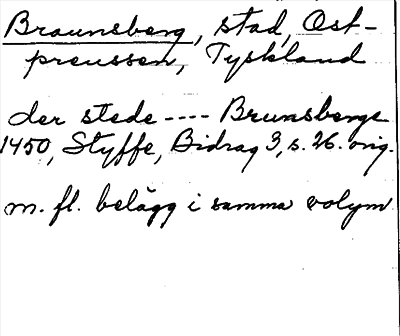 Braunsberg, stad, Ost-
preussen, Tyskland
der stede ---- Brunsberge
1450, Styffe, Bidrag 3, s. 26. orig.
m. fl. belägg i samma volym